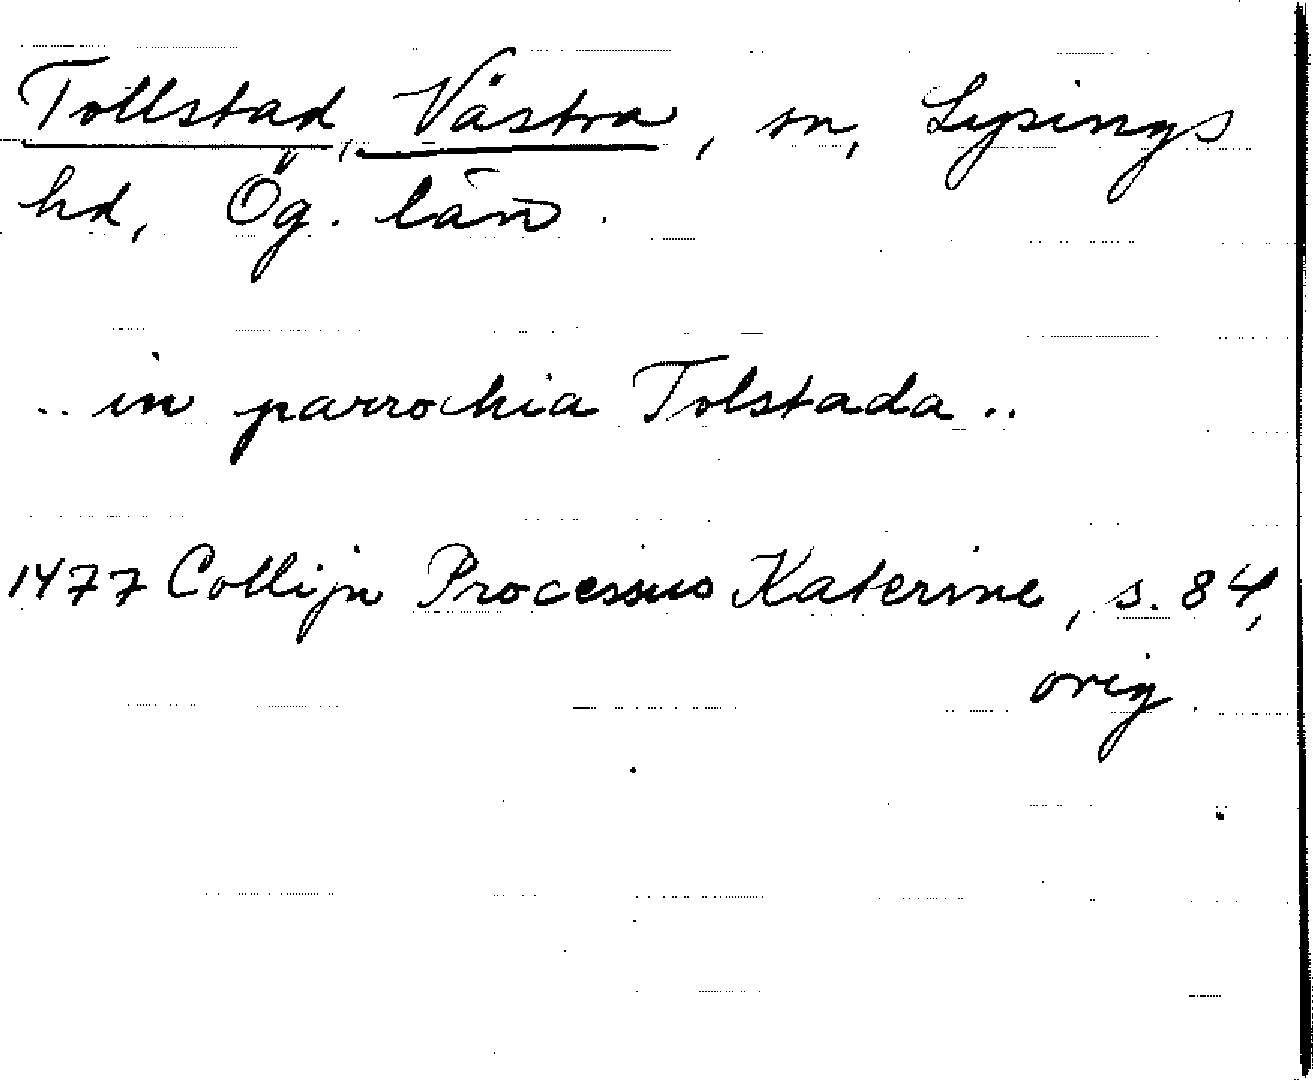 Tollstad, Västra, sn, Lysings
hd, Ög. län.
.. in parrochia Tolstada ..
1477 Collijn Processus Katerine, s. 84,
orig.